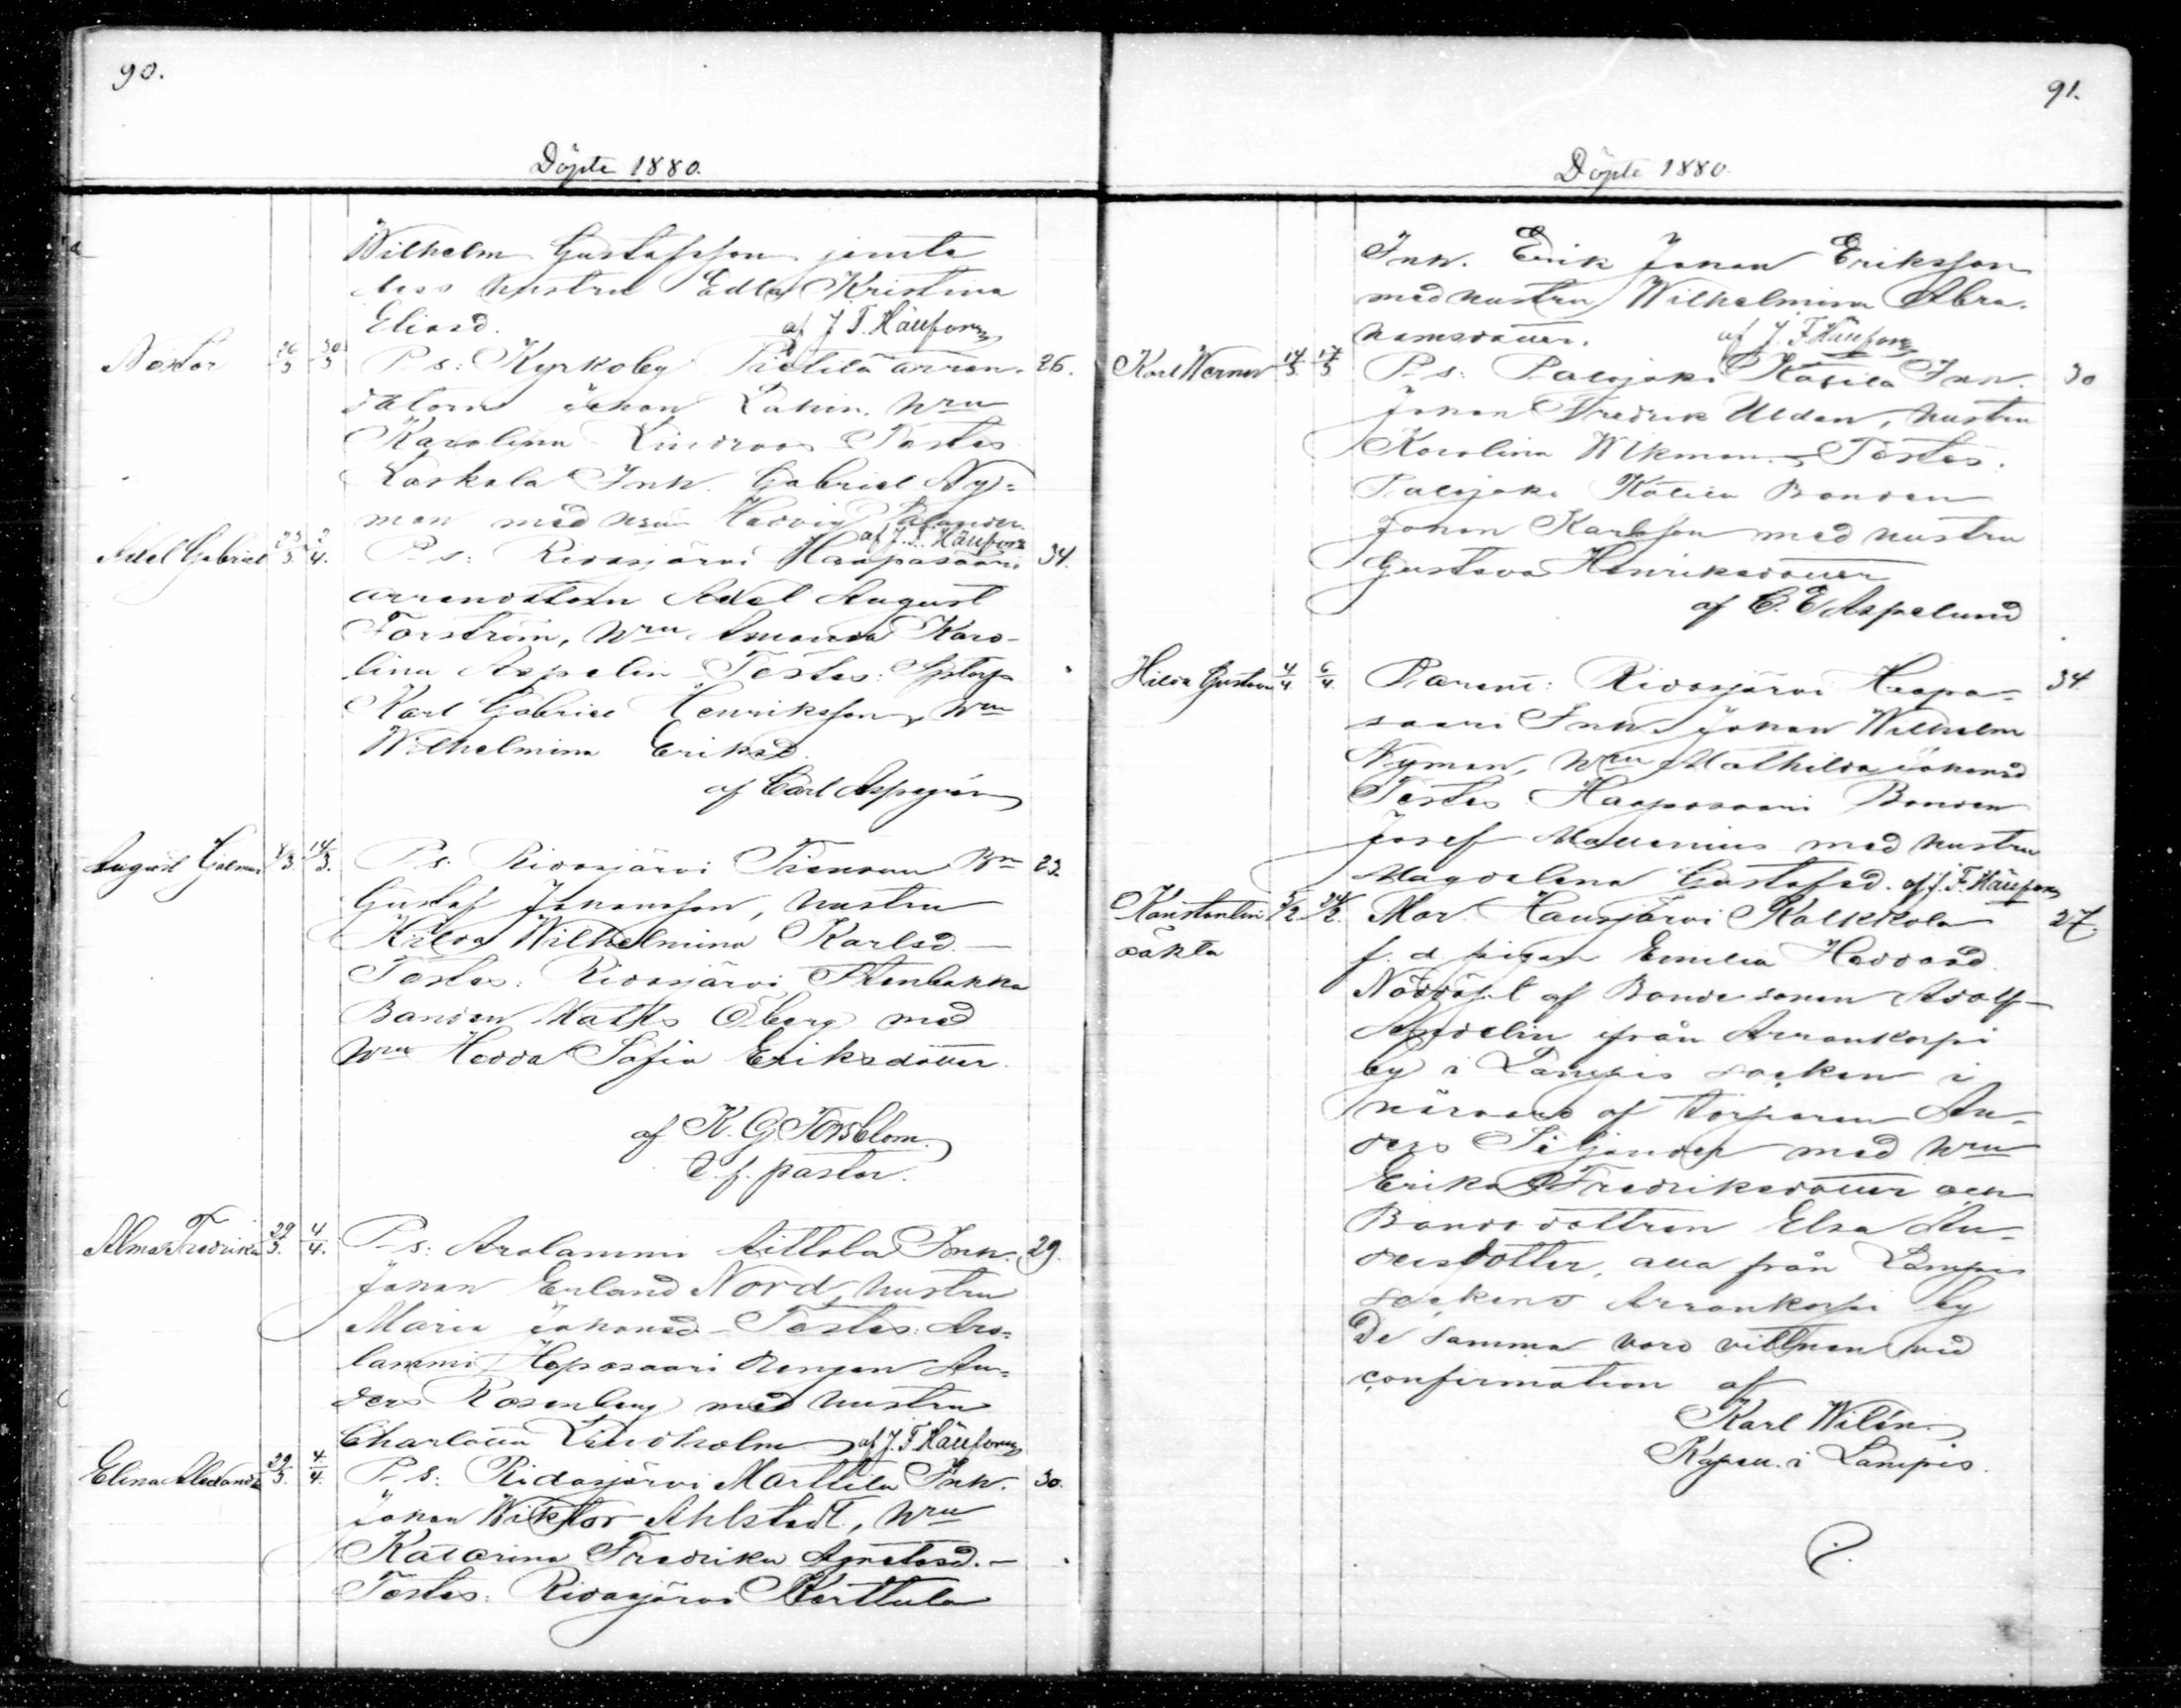 90.
Döpte 1880.
Wilhelm Gustafsson jemte
dess hustru Edla Kristina
Eliasd. af J. F. Häuforss
Nestor 26/3 30/3 P-s: Kyrkoby Pietilä arren- 26.
datorn Johan Lahin, hru
Karolina Lindroos Testes
Laskala Inh. Gabriel Ny=
man med hru Hedvig
af J. F. Häuforss
Axel Gabriel 23/3 2/4. P-s: Ridasjärvi Haapasaari 34.
arrendatorn Axel August
Forström, hru Amanda Karo-
lina Aspelin Testes:
Karl Gabriel Henriksson, hru
Wilhelmina Eriksd.
af Carl Aspegrén
August Hjalmar 8/3 14/3. P-s. Ridasjärvi Bn 23.
Gustaf Johansson, hustru
Hilda Wilhelmina Karlsd. —
Testes: Ridasjärvi Stenbakka
Bonden Matts Öberg med
hru Hedda Sofia Eriksdotter.
af K. G. Forsblom.
t. f. pastor.
Alma Fredrika 29/3. 4/4. P-s: Arolammi Aittola Inh. 29.
Johan Erland Nord, hustru
Maria Johansd – Testes: Aro=
lammi Heposaari drengen An=
ders Rosenberg med hustru
Charlotta Lindholm af J. F. Häuforss
Elina Alexandra 29/3. 4/4. P-s: Ridasjärvi Marttila Inh. 30.
Johan Wiktor Ahlstedt, hru
Katarina Fredrika Agnetasd. —
Testes: Ridasjärvi Kerttula
91.
Döpte 1880.
Inh. Erik Johan Eriksson
med hustru Wilhelmina Abra-
hamsdotter. af J. F. Häuforss
Karl Werner 14/3 17/3 P-s: Palojoki Kätilä Inh. 30
Johan Fredrik Uldén, hustru
Karolina Wikman. – Testes.
Palojoki Kätilä Bonden
Johan Karlsson med hustru
Gustava Henriksdotter
af C. E. Aspelund
Hilda Gustava 4/4 6/4. Parent: Ridasjärvi Haapa- 34.
saari Inh. Johan Wilhelm
Nyman, hru Mathilda Johansd
Testes Haapasaari Bonden
Josef Mattenius med hustru
Magdalena Gustafsd. af J. F. Häuforss
Konstantin 5/2. 24/2. Mor. Hausjärvi Kalkkola 27.
oäkta f. d. pigan Emilia Heddasd.
Nöddöpt af Bondesonen Adolf
Andelin ifrån Arrankorpi
by i Lampis socken i
närvaro af torparen An-
ders Siljander med hru
Erika Fredriksdotter och
Bondedottren Elsa An-
dersdotter, alla från Lampis
sockens Arrankorpi by
De samma voro vittnen vid
confirmation af
Karl Wilén
Kapell. i Lampis.